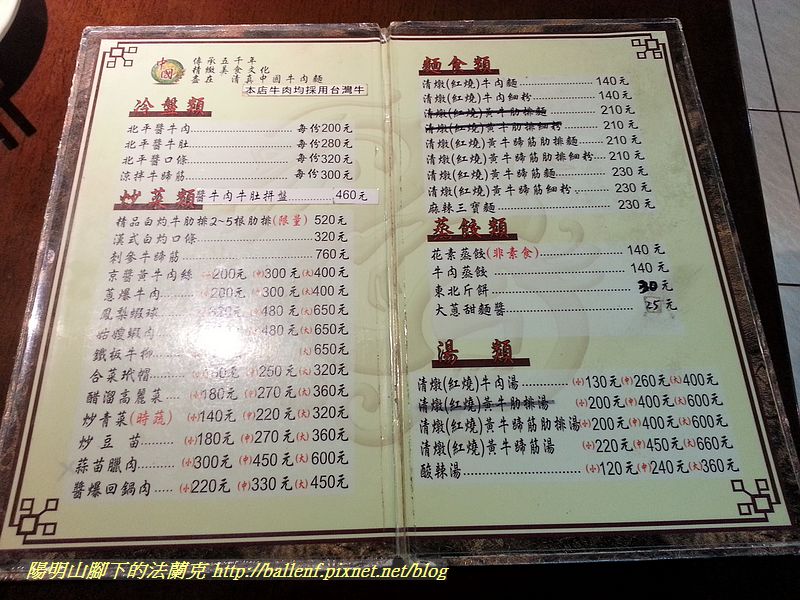 中國
傳承五千年
精緻美食文化
盡在 清真中國牛肉麵
本店牛肉均採用台灣牛
冷盤類
北平醬牛肉 每份200元
北平醬牛肚 每份280元
北平醬口條 每份320元
涼拌牛蹄筋 每份300元
炒菜類
醬牛肉牛肚拼盤 460元
精品白灼牛肋排2~5根肋排(限量) 520元
漢式白灼口條 320元
刺參牛蹄筋 760元
京醬黃牛肉絲 (小)200元 (中)300元 (大)400元
蔥爆牛肉 (小)200元 (中)300元 (大)400元
鳳梨蝦球 (中)480元 (大)650元
姑嫂蝦肉 (中)480元 (大)650元
鐵板牛柳 (大)650元
合菜玳帽 (中)250元 (大)320元
醋溜高麗菜 (小)180元 (中)270元 (大)360元
炒青菜(時蔬) (小)140元 (中)220元 (大)320元
炒豆苗 (小)180元 (中)270元 (大)360元
蒜苗臘肉 (小)300元 (中)450元 (大)600元
醬爆回鍋肉 (小)220元 (中)330元 (大)450元
麵食類
清燉(紅燒)牛肉麵 140元
清燉(紅燒)牛肉細粉 140元
清燉(紅燒)黃牛肋排麵 210元
清燉(紅燒)黃牛肋排細粉 210元
清燉(紅燒)黃牛蹄筋肋排麵 210元
清燉(紅燒)黃牛蹄筋肋排細粉 210元
清燉(紅燒)黃牛蹄筋麵 230元
清燉(紅燒)黃牛蹄筋細粉 230元
麻辣三寶麵 230元
蒸餃類
花素蒸餃(非素食) 140元
牛肉蒸餃 140元
東北斤餅 30元
大蔥甜麵醬 25元
湯類
清燉(紅燒)牛肉湯 (小)130元 (中)260元 (大)400元
清燉(紅燒)黃牛肋排湯 (小)200元 (中)400元 (大)600元
清燉(紅燒)黃牛蹄筋肋排湯 (小)200元 (中)400元 (大)600元
清燉(紅燒)黃牛蹄筋湯 (小)220元 (中)450元 (大)660元
酸辣湯 (小)120元 (中)240元 (大)360元
陽明山腳下的法蘭克 http://ballenf.pixnet.net/blog